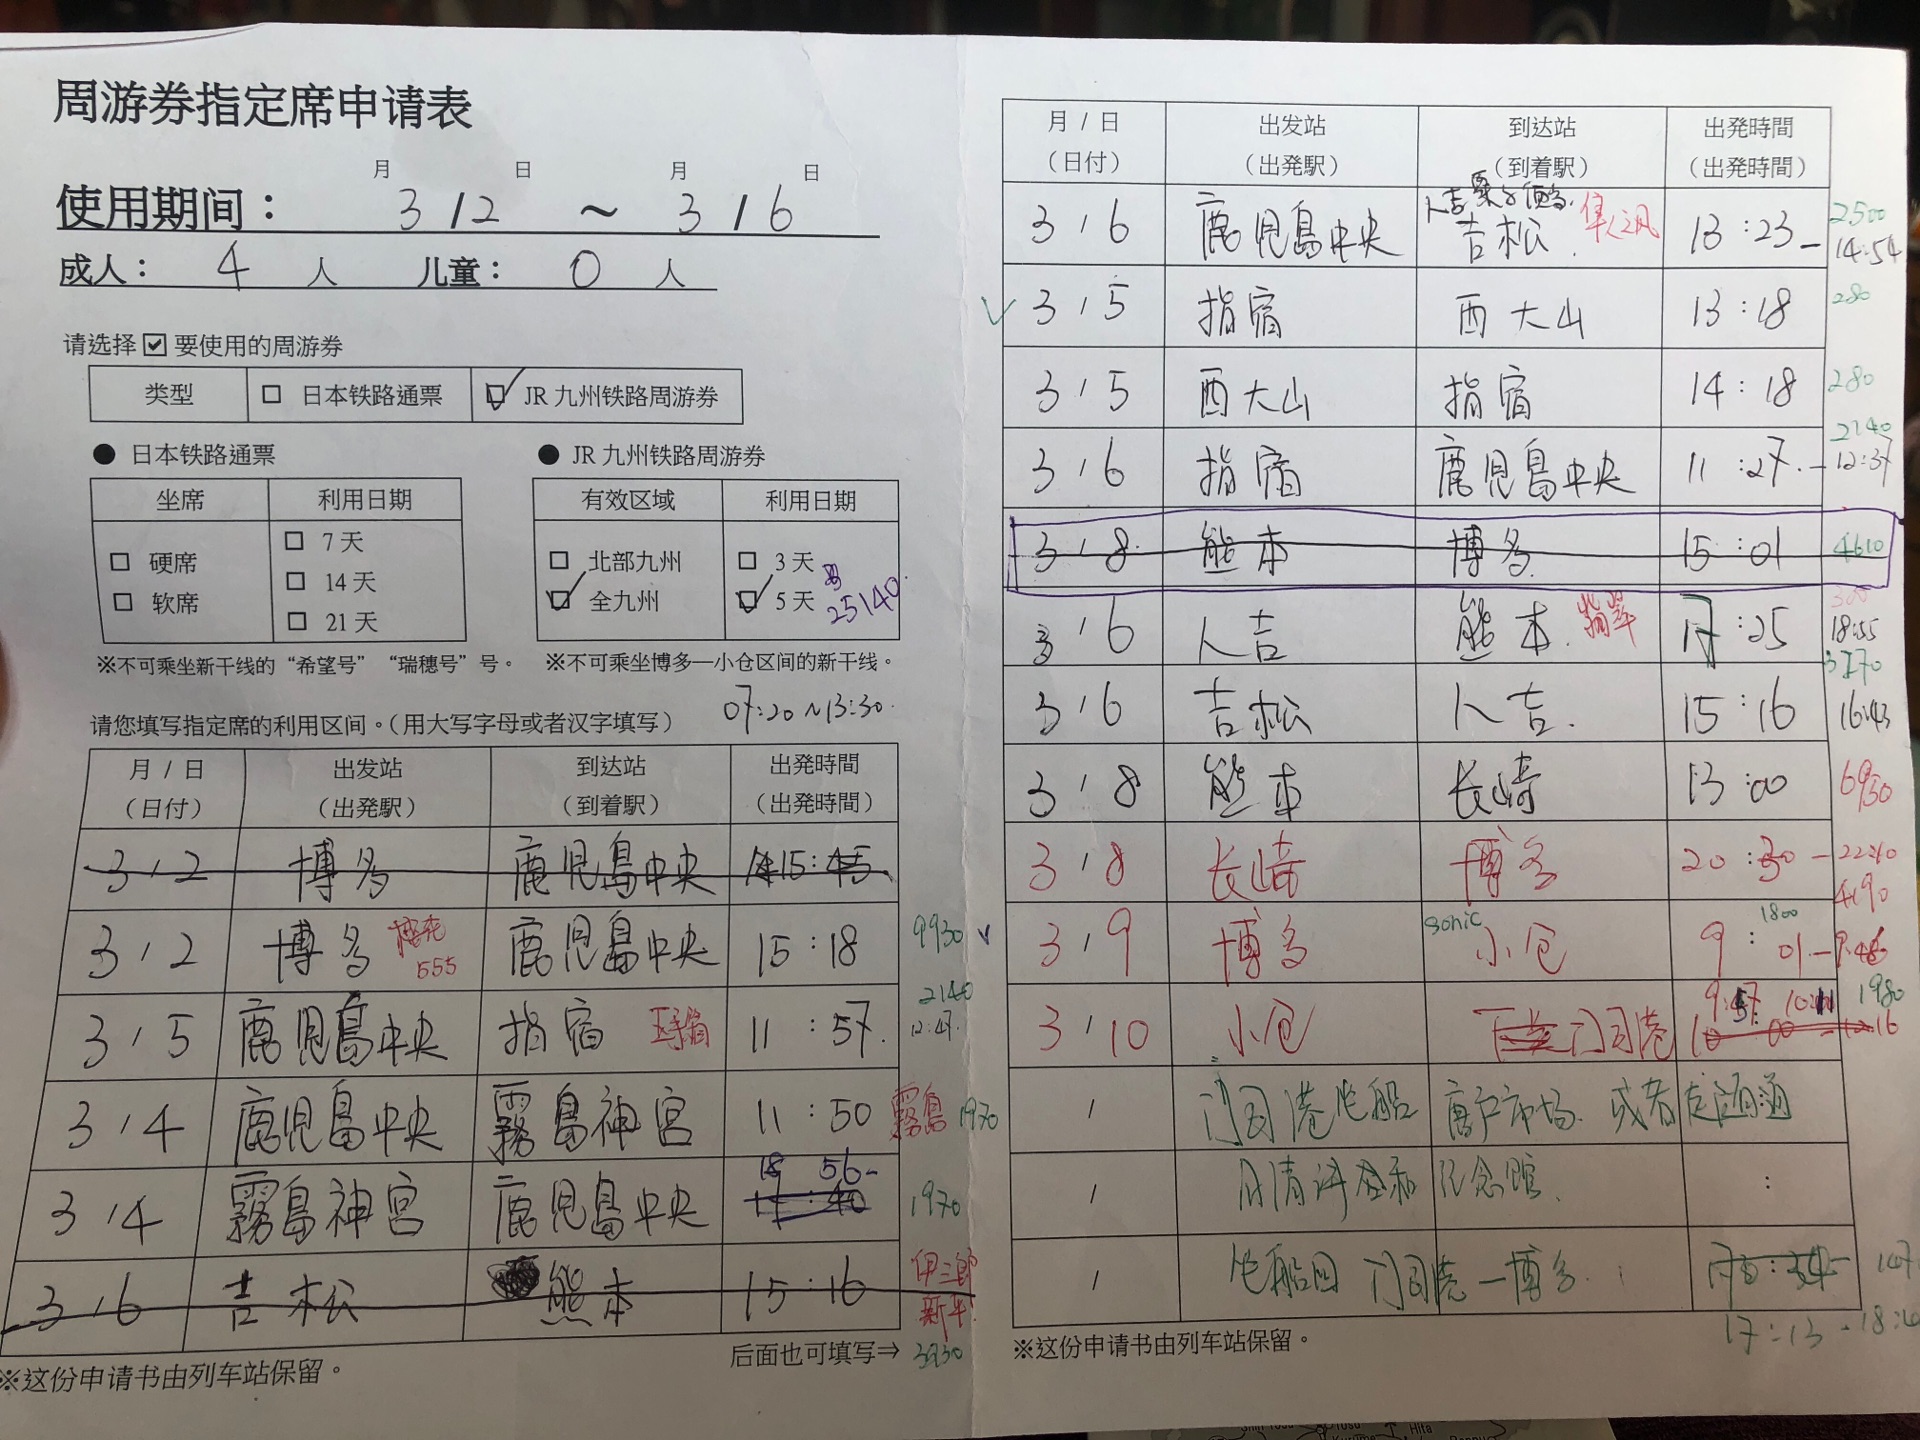 周游券指定席申请表
月 日 月 日
使用期间： 3 12 ~ 3 16
成人： 4 人 儿童： 0 人
请选择 ☑ 要使用的周游券
类型 □ 日本铁路通票 ☑ JR 九州铁路周游券
● 日本铁路通票 ● JR 九州铁路周游券
坐席 利用日期 有效区域 利用日期
□ 硬席 □ 7 天 □ 北部九州 □ 3 天
□ 软席 □ 14 天 ☑ 全九州 ☑ 5 天 25140
□ 21 天
※不可乘坐新干线的“希望号”“瑞穗号”号。 ※不可乘坐博多—小仓区间的新干线。
07:20~13:30
请您填写指定席的利用区间。（用大写字母或者汉字填写）
月 / 日 出发站 到达站 出発時間
（日付） （出発駅） （到着駅） （出発時間）
3 / 2 博多 鹿児島中央 15:45
3 / 2 博多 樱花 555 鹿児島中央 15:18 9930
3 / 5 鹿児島中央 指宿 玉手箱 11:57 2140 12:47
3 / 4 鹿児島中央 霧島神宮 11:50 霧島 1970
3 / 4 霧島神宮 鹿児島中央 18 56- 1970
3 / 6 吉松 熊本 15:16 伊三郎 新平 3930
后面也可填写⇒
※这份申请书由列车站保留。
月 / 日 出发站 到达站 出発時間
（日付） （出発駅） （到着駅） （出発時間）
3 / 6 鹿児島中央 吉松 隼人之风 13:23- 2500 14:54
3 / 5 指宿 西大山 13:18 280
3 / 5 西大山 指宿 14:18 280
3 / 6 指宿 鹿児島中央 11:27- 2140 12:37
3 / 8 熊本 博多 15:01 4610
3 / 6 人吉 熊本 翡翠 17:25 18:55
3 / 6 吉松 人吉 15:16 16:43
3 / 8 熊本 长崎 13:00 6930
3 / 8 长崎 博多 20:30- 2240 4190
3 / 9 博多 sonic 小仓 9:01- 1800
3 / 10 小仓 门司港 1980
/ 门司港坐船 唐户市场 或者走隧道
/ 日清讲和 纪念馆 :
/ 坐船回 门司港—博多
17:13
※这份申请书由列车站保留。